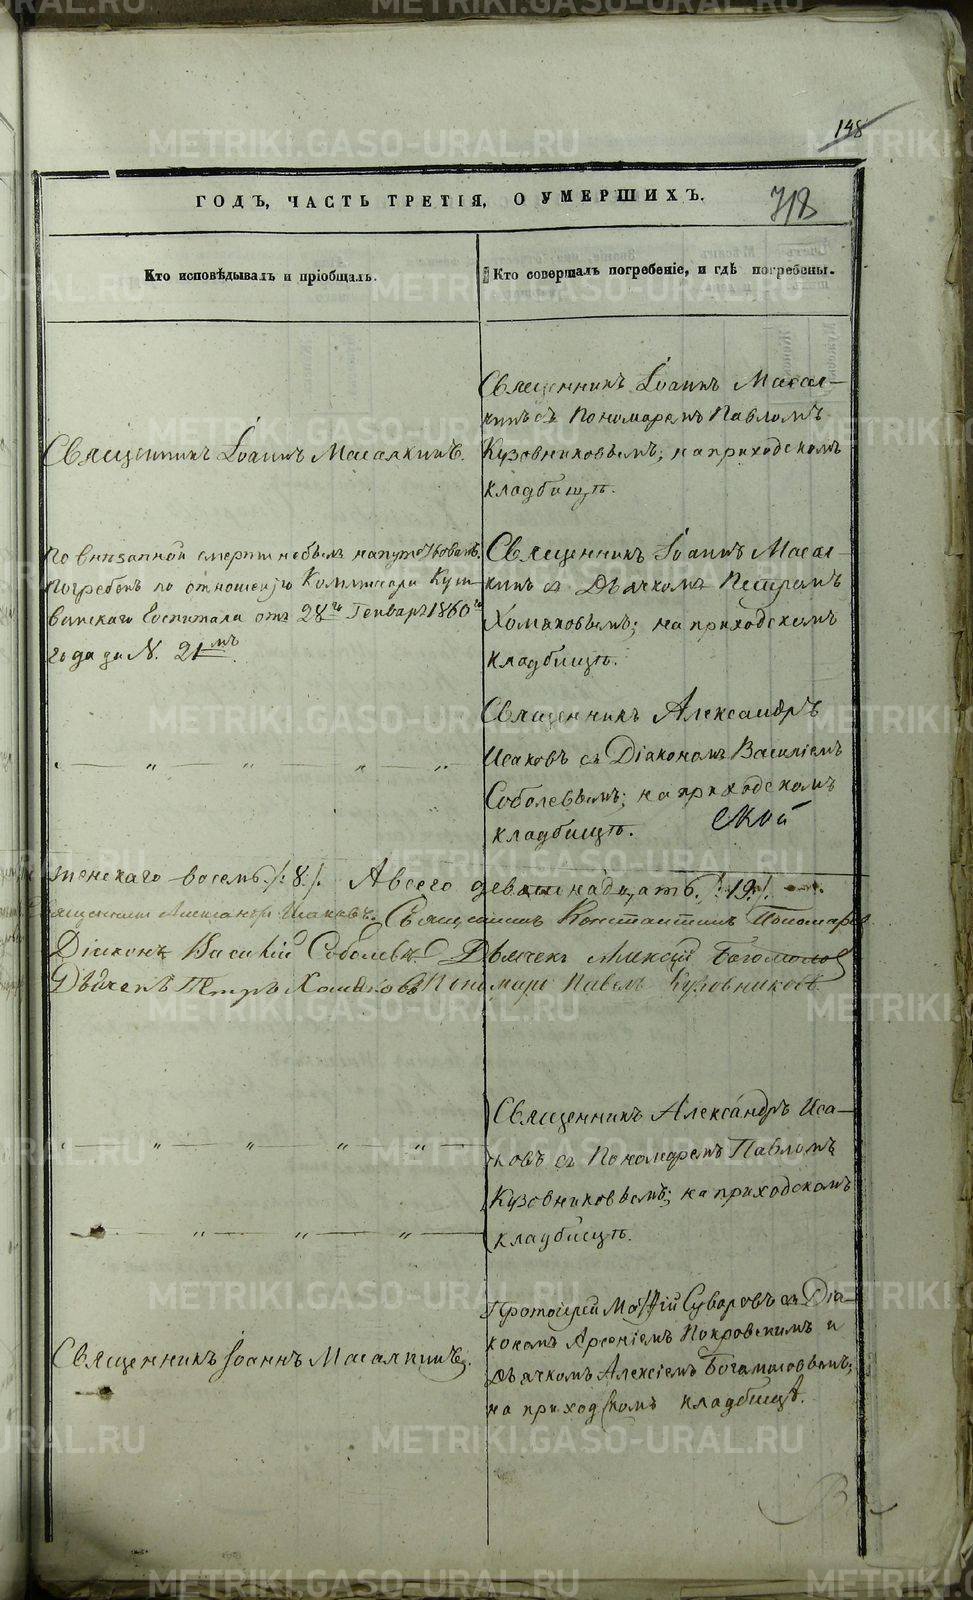 148
718
ГОДЪ, ЧАСТЬ ТРЕТІЯ, О УМЕРШИХЪ.
Кто исповѣдывалъ и пріобщалъ.
Кто совершалъ погребеніе, и гдѣ погребены.
Священникъ Іоаннъ Масалкинъ.
Священникъ Іоаннъ Масал-
кинъ съ Пономаремъ Павломъ
Кузовниковымъ; на приходскомъ
кладбищѣ.
По внезапной смерти небылъ напутствованъ.
Погребенъ по отношенію Коммисара Куш-
винскаго Госпиталя отъ 28го Генваря 1860го
года за N. 21мъ.
Священникъ Іоаннъ Масал-
кинъ съ Дьячкомъ Петромъ
Хомяковымъ; на приходскомъ
кладбищѣ.
Священникъ Александръ
Исаковъ съ Діакономъ Василіемъ
Соболевымъ; на приходскомъ
кладбищѣ.
женскаго восемь /:8./. А всего девятнадцать. /:19:/.
Священникъ Александръ Исаковъ. Священникъ Константинъ Пономарев
Діаконъ Василій Соболевъ. Дьячекъ Алексій Богомолов
Дьячекъ Петръ Хомяковъ Пономарь Павелъ Кузовниковъ
Священникъ Александръ Иса-
ковъ съ Пономаремъ Павломъ
Кузовниковымъ; на приходскомъ
кладбищѣ.
Священникъ Іоаннъ Масалкинъ.
Протоіерей Матѳій Суворовъ съ Діа-
кономъ Арсеніемъ Покровскимъ и
дьячкомъ Алексіемъ Богомоловымъ;
на приходскомъ кладбищѣ.
METRIKI.GASO-URAL.RU